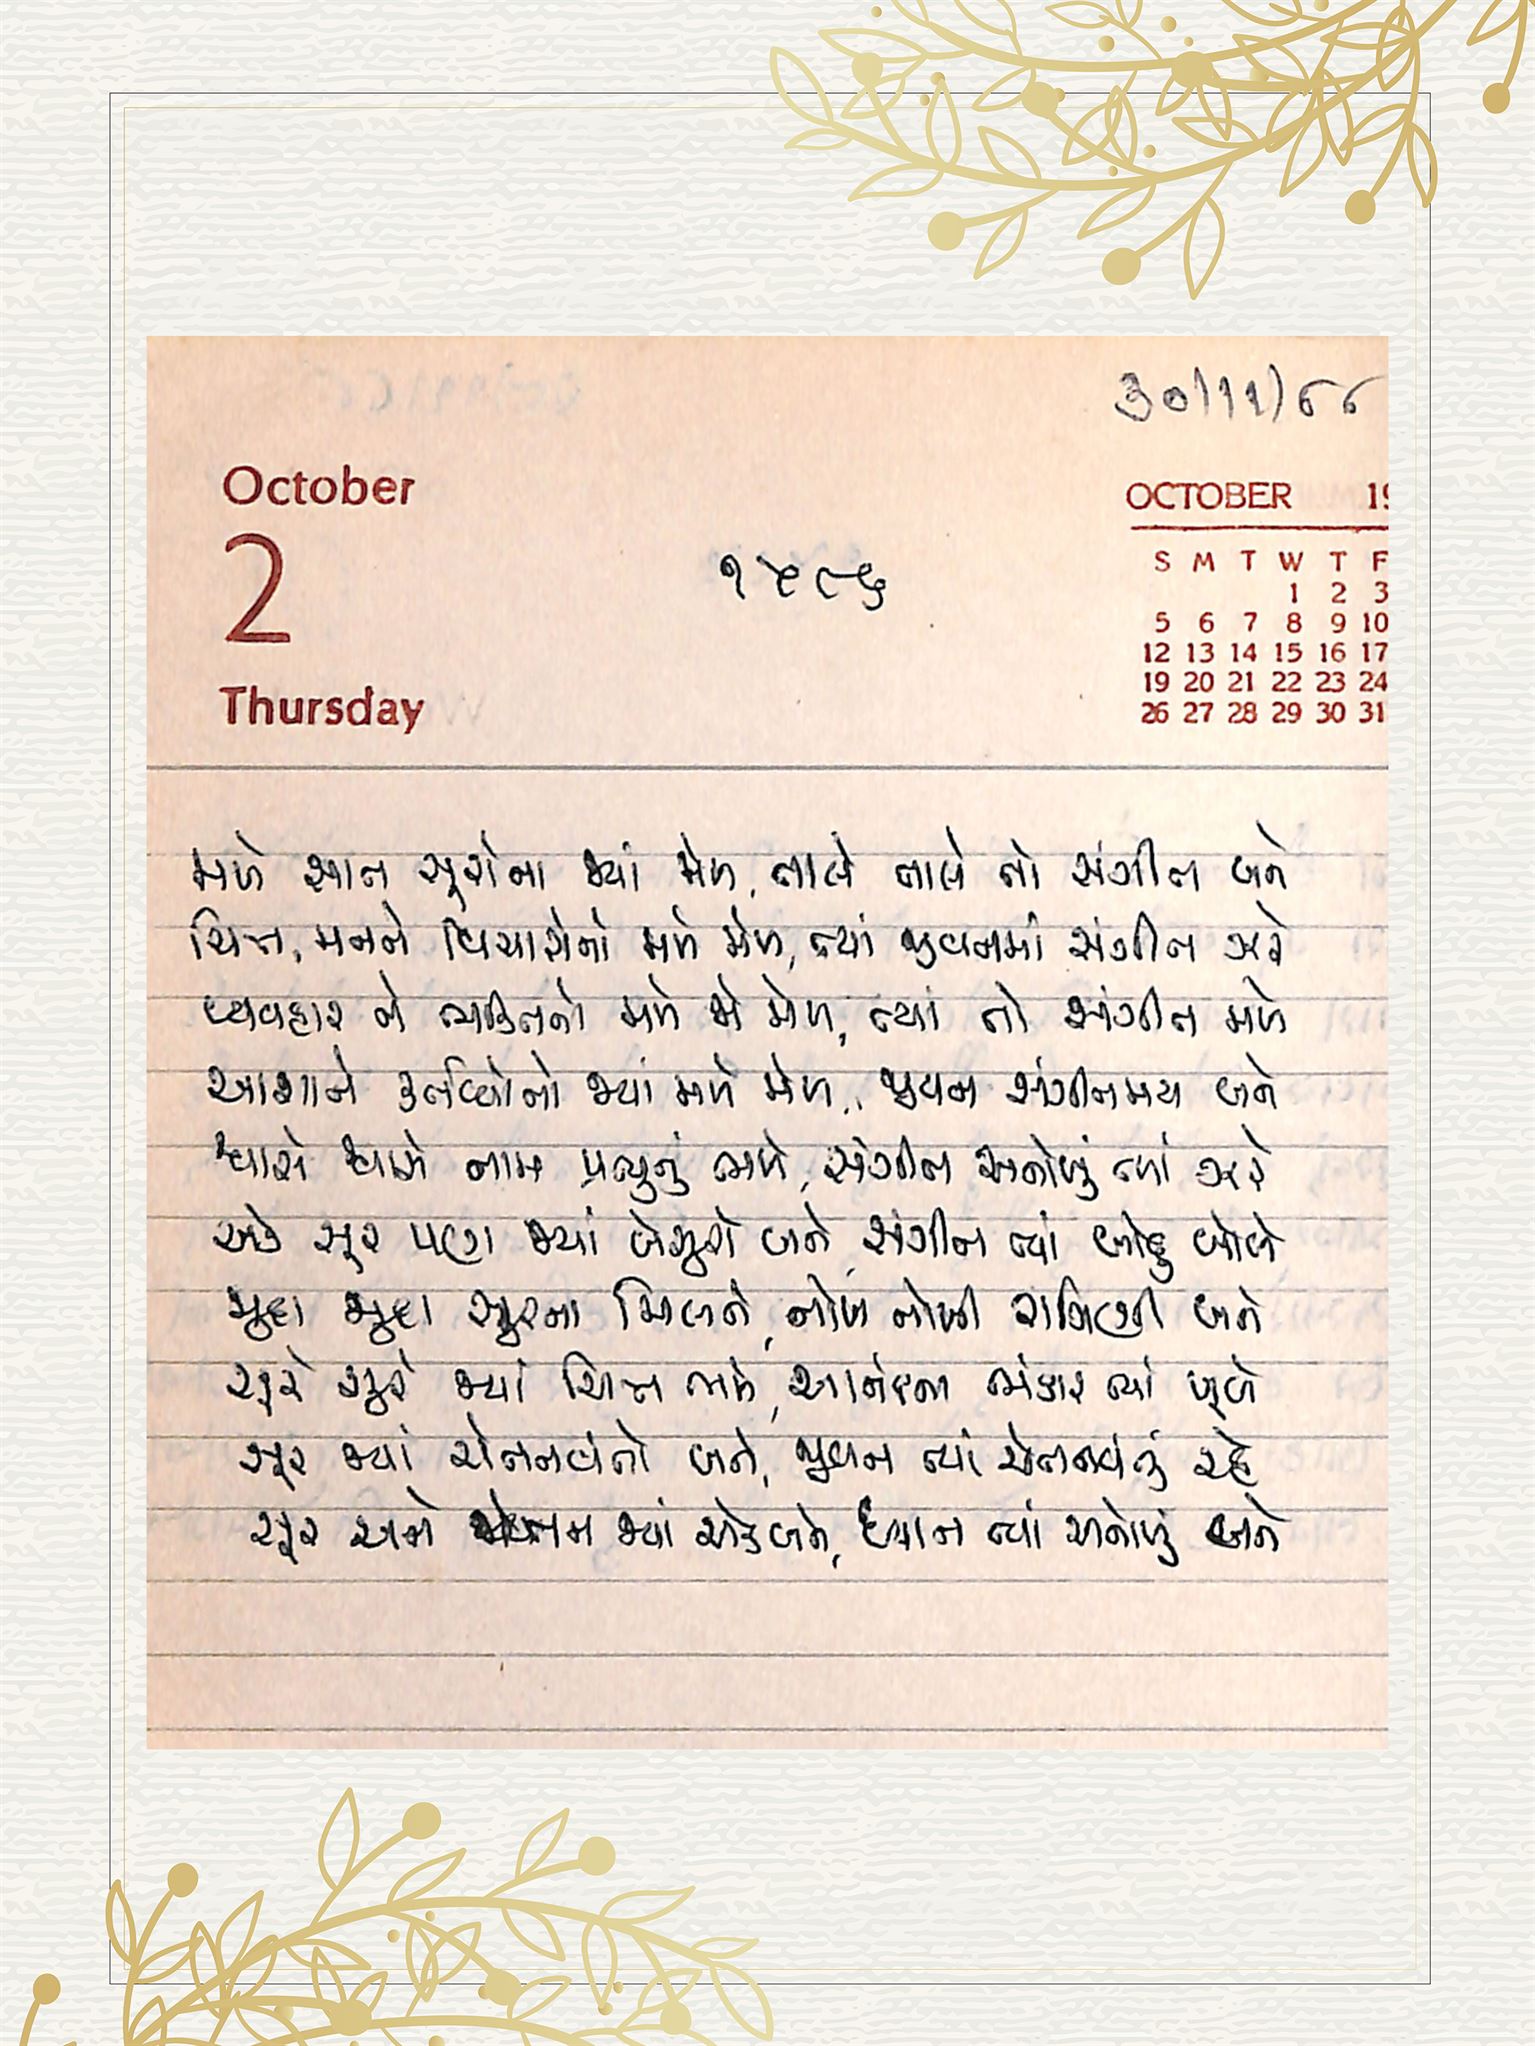 ૩૦/૧૧/૯૯
October
2
Thursday
OCTOBER 19
S M T W T F
1 2 3
5 6 7 8 9 10
12 13 14 15 16 17
19 20 21 22 23 24
26 27 28 29 30 31
મળે સાત સૂરોના જ્યાં મેળ, તાલે તાલે તો સંગીત બને
ચિત્ત, મનને વિચારોનો મળે મેળ, ત્યાં જીવનમાં સંગીત ઝરે
વ્યવહાર ને ભક્તિનો મળે જો મેળ, ત્યાં તો સંગીત મળે
આશાને કર્તવ્યોનો જ્યાં મળે મેળ, જીવન સંગીતમય બને
શ્વાસે શ્વાસે નામ પ્રભુનું ભળે, સંગીત અનોખું ત્યાં ઝરે
એક સૂર પણ જ્યાં બેસૂરો બને, સંગીત ત્યાં બોદું બોલે
જુદા જુદા સૂરના મિલને, નોખ નોખી રાગિણી બને
સૂરે સૂરે જ્યાં ચિત્ત ભળે, આનંદના ભંડાર ત્યાં ખૂલે
સૂર જ્યાં ચેતનવંતો બને, જીવન ત્યાં ચેતનવંતું રહે
સૂર અને ચેતન જ્યાં એકબને, ધ્યાન ત્યાં અનોખું બને